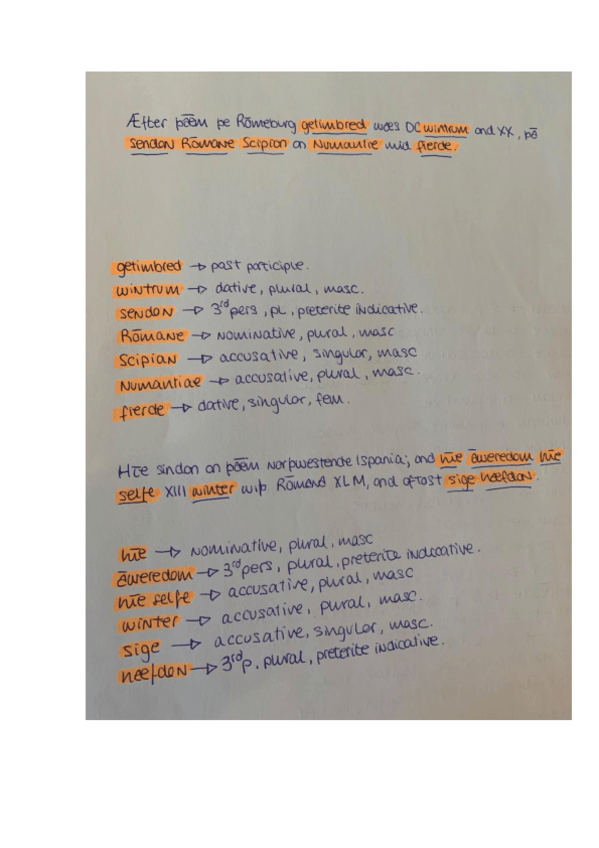 Æfter þǣm þe Rōmeburg getimbred wæs DC wintrum and XX, þā
sendon Rōmane Scipion on Numantie mid fierde.
getimbred → past participle.
wintrum → dative, plural, masc.
sendon → 3rd pers, pl, preterite indicative.
Rōmane → nominative, plural, masc
Scipian → accusative, singular, masc
Numantiae → accusative, plural, masc.
fierde → dative, singular, fem.
Hīe sindon on þǣm norþwestende Ispania; and hīe āweredom hīe
selfe XIII winter wiþ Rōmana XLM, and oftost sige hæfdon.
hīe → nominative, plural, masc
āweredom → 3rd pers, plural, preterite indicative.
hīe selfe → accusative, plural, masc
winter → accusative, plural, masc.
sige → accusative, singular, masc.
hæfdon → 3rd p, plural, preterite indicative.